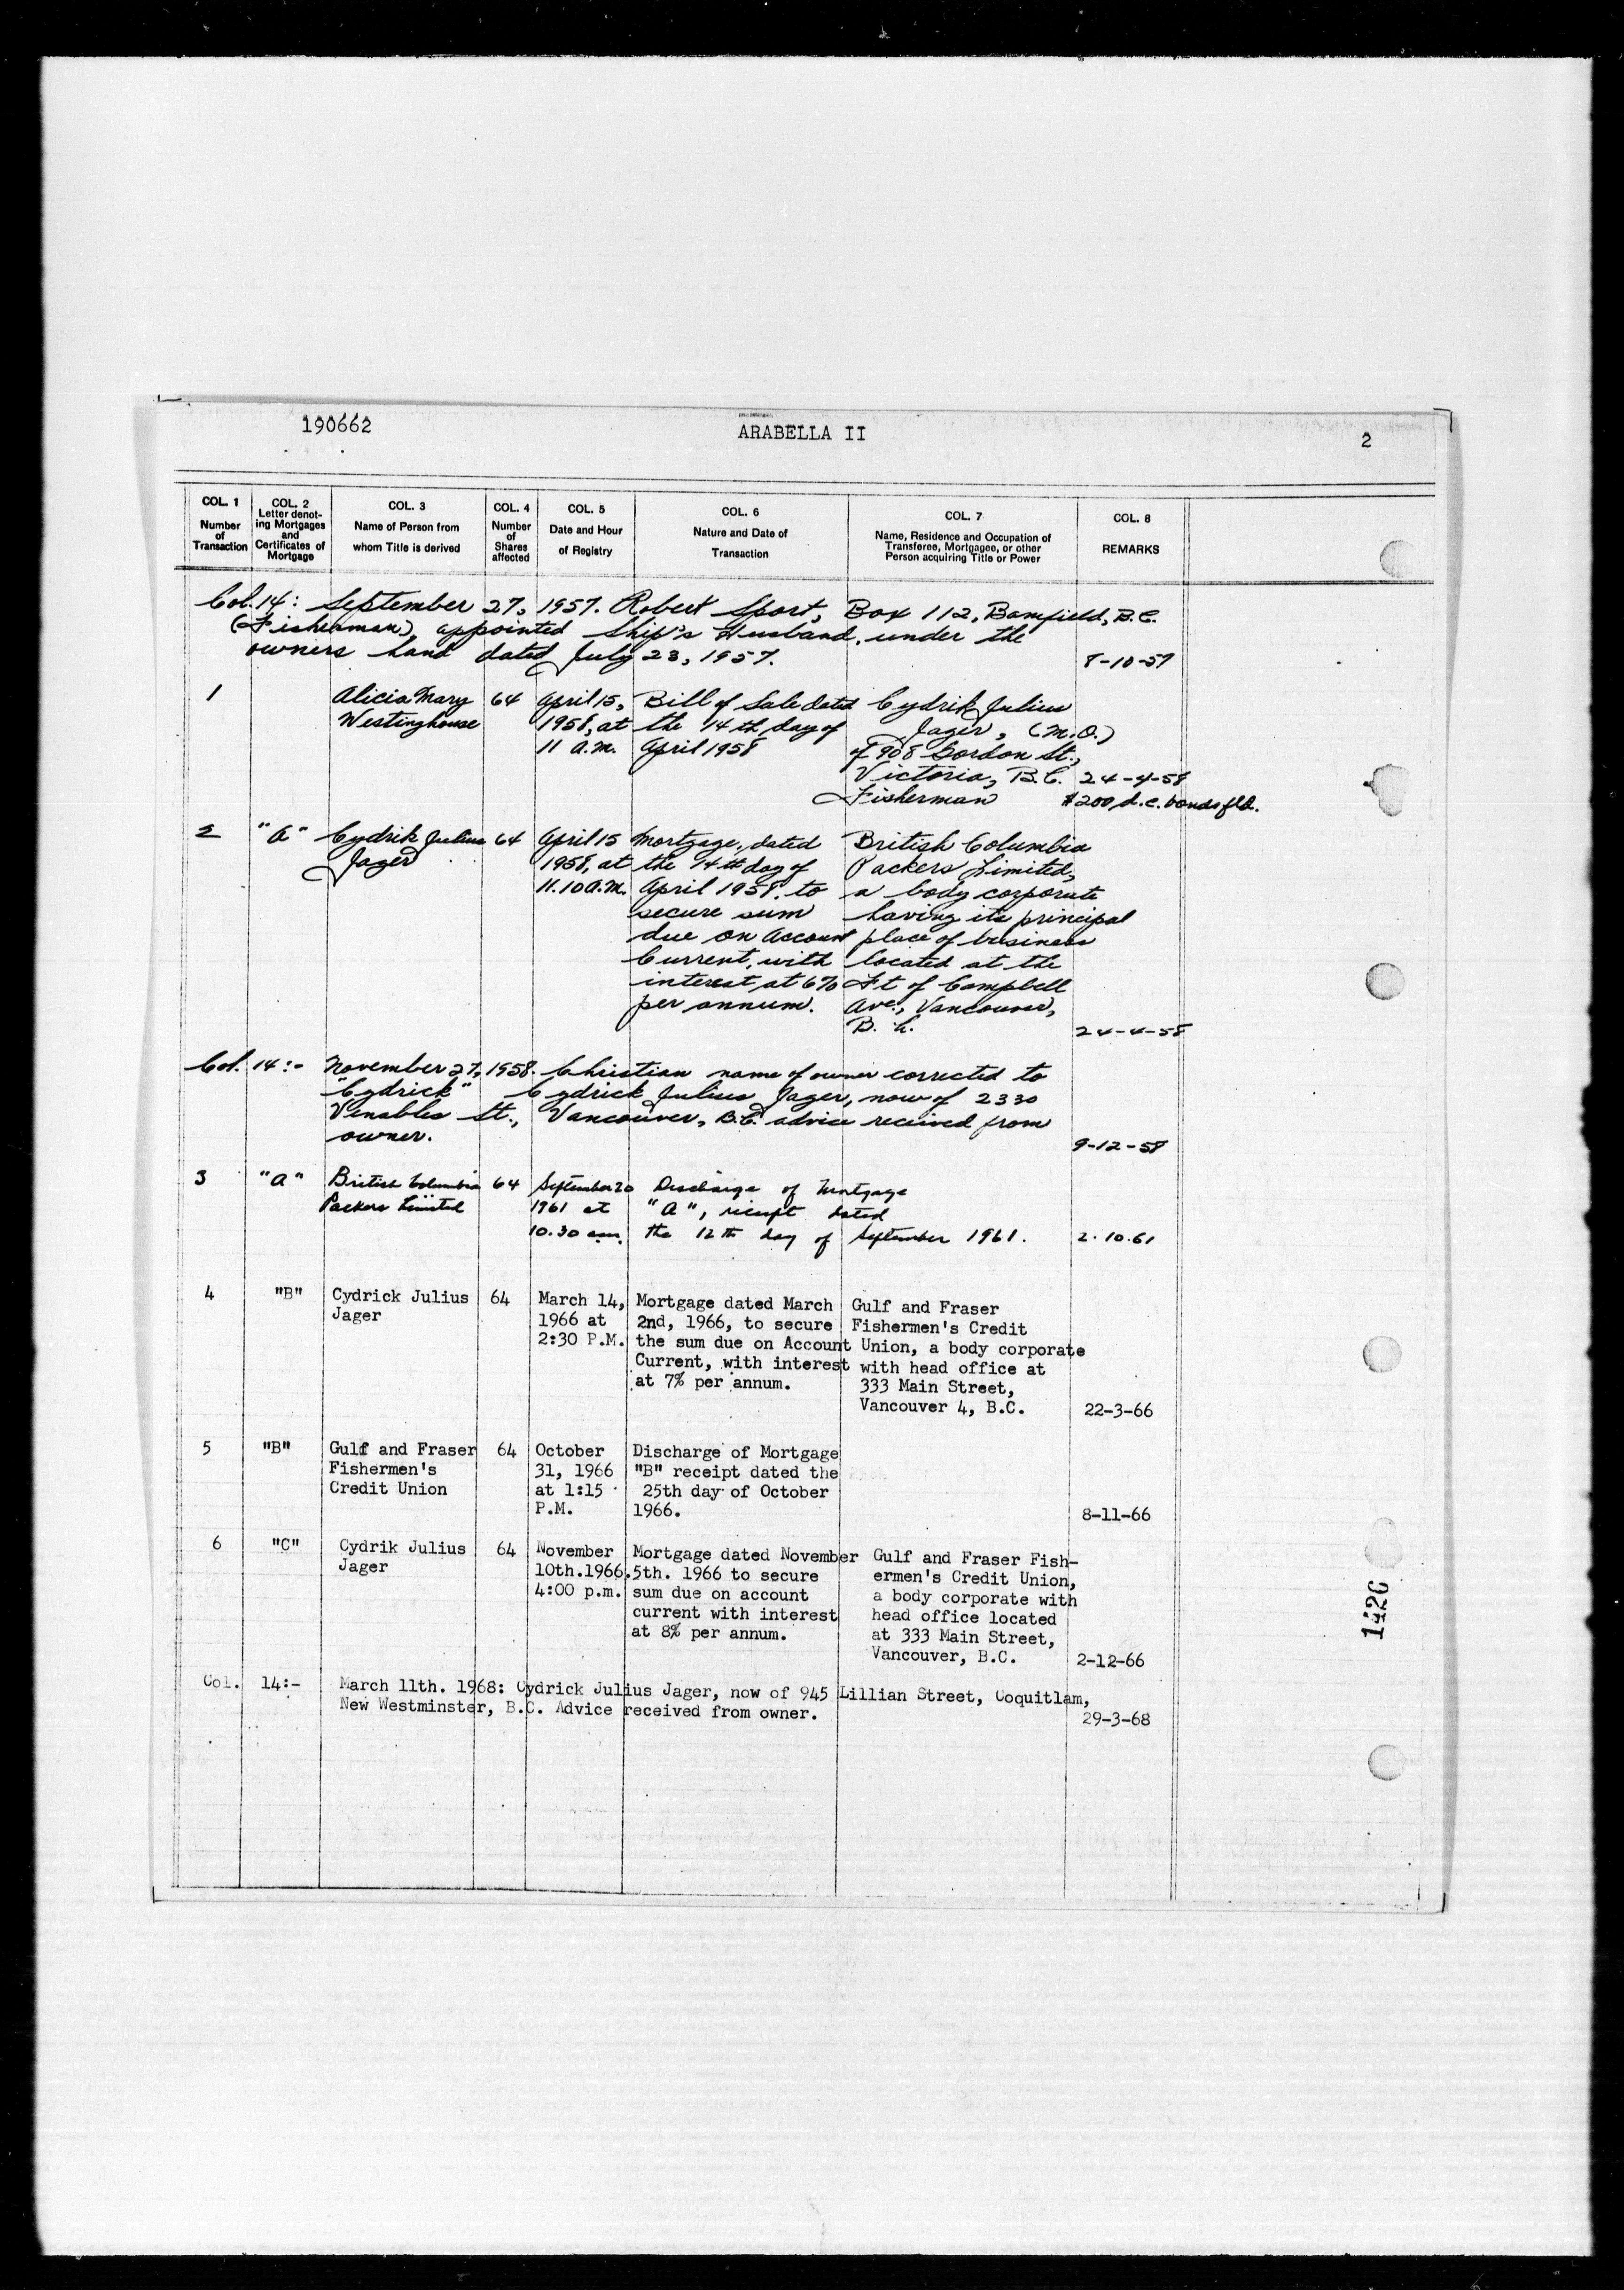 190662
ARABELLA II
2
COL. 1
Number
of
Transaction
COL. 2
Letter denot-
ing Mortgages
and
Certificates of
Mortgage
COL. 3
Name of Person from
whom Title is derived
COL. 4
Number
of
Shares
affected
COL. 5
Date and Hour
of Registry
COL. 6
Nature and Date of
Transaction
COL. 7
Name, Residence and Occupation of
Transferee, Mortgagee, or other
Person acquiring Title or Power
COL. 8
REMARKS
Col. 14: September 27, 1957. Robert Sport, Box 112, Bamfield, B.C.
(Fisherman), appointed Ship's Husband, under the
owners hand dated July 23, 1957.
8-10-57
1
Alicia Mary
Westinghouse
64
April 15,
1958, at
11 a.m.
Bill of Sale dated
the 14th day of
April 1958
Cydrik Julius
Jager, (M.O.)
of 908 Gordon St.,
Victoria, B.C.
Fisherman
24-4-58
$200 d.c. bonds fld.
2
"A"
Cydrik Julius
Jager
64
April 15
1958, at
11.10 a.m.
Mortgage, dated
the 14th day of
April 1958. to
secure sum
due on Account
Current, with
interest at 6%
per annum.
British Columbia
Packers Limited,
a body corporate
having its principal
place of business
located at the
Ft of Campbell
Ave., Vancouver,
B. C.
24-4-58
Col. 14:- November 27, 1958. Christian name of owner corrected to
"Cydrick" Cydrick Julius Jager, now of 2330
Venables St., Vancouver, B.C. advice received from
owner.
9-12-58
3
"A"
British Columbia
Packers Limited
64
September 20
1961 at
10.30 am.
Discharge of Mortgage
"A", receipt dated
the 12th day of September 1961.
2.10.61
4
"B"
Cydrick Julius
Jager
64
March 14,
1966 at
2:30 P.M.
Mortgage dated March
2nd, 1966, to secure
the sum due on Account
Current, with interest
at 7% per annum.
Gulf and Fraser
Fishermen's Credit
Union, a body corporate
with head office at
333 Main Street,
Vancouver 4, B.C.
22-3-66
5
"B"
Gulf and Fraser
Fishermen's
Credit Union
64
October
31, 1966
at 1:15
P.M.
Discharge of Mortgage
"B" receipt dated the
25th day of October
1966.
8-11-66
6
"C"
Cydrik Julius
Jager
64
November
10th.1966.
4:00 p.m.
Mortgage dated November
5th. 1966 to secure
sum due on account
current with interest
at 8% per annum.
Gulf and Fraser Fish-
ermen's Credit Union,
a body corporate with
head office located
at 333 Main Street,
Vancouver, B.C.
2-12-66
1426
Col. 14:- March 11th. 1968: Cydrick Julius Jager, now of 945 Lillian Street, Coquitlam,
New Westminster, B.C. Advice received from owner.
29-3-68